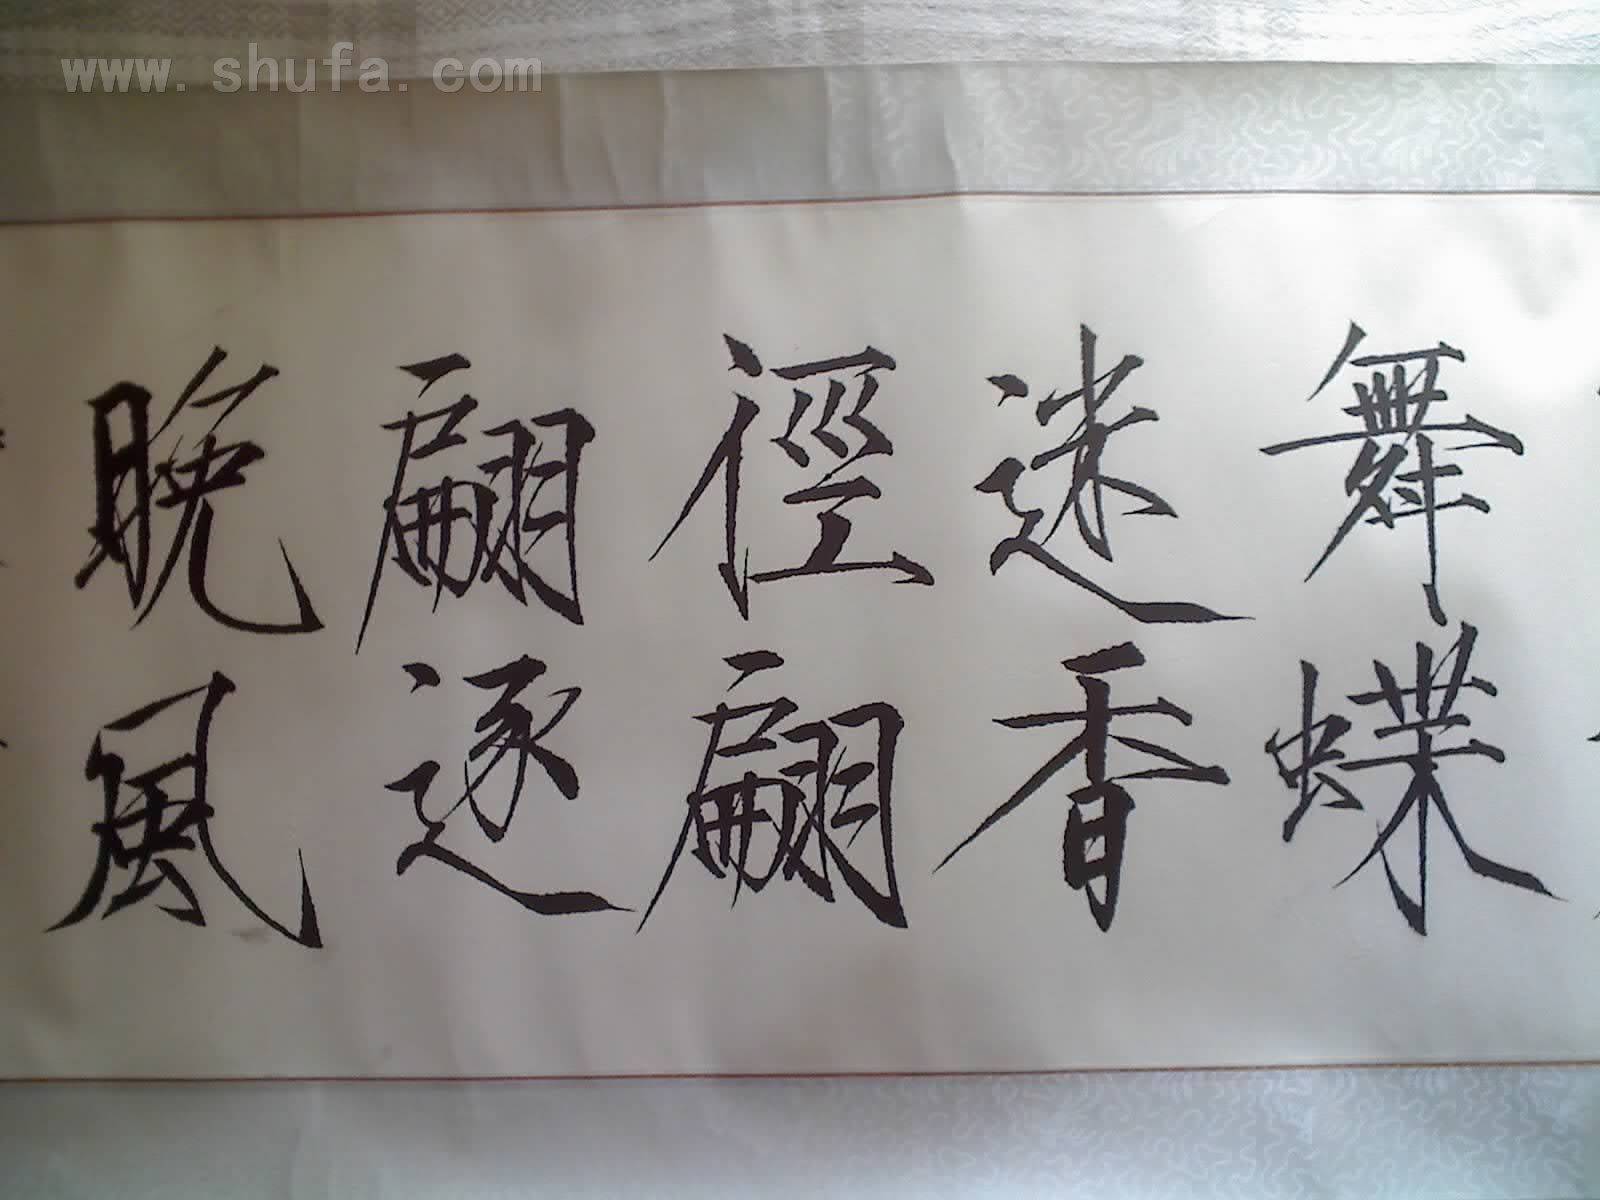 www.shufa.com
舞蝶
迷香
徑翩
翩逐
晚風